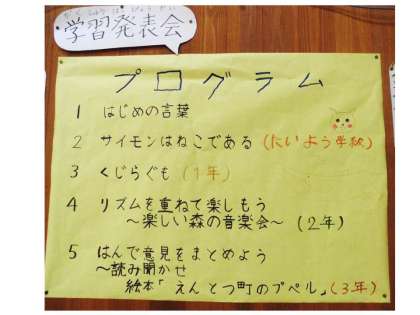 がくしゅうはっぴょうかい
学習発表会
プログラム
1 はじめの言葉
2 サイモンはねこである(たいよう学級)
3 くじらぐも(1年)
4 リズムを重ねて楽しもう
～楽しい森の音楽会～(2年)
5 はんで意見をまとめよう
～読み聞かせ
絵本「えんとつ町のプペル」(3年)